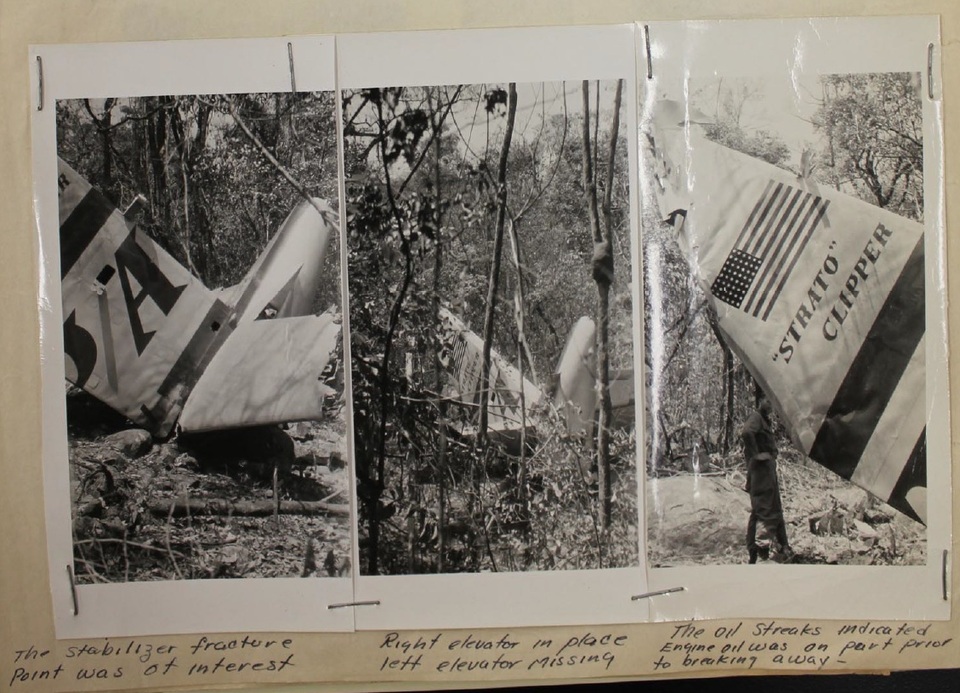 "STRATO"
CLIPPER
The stabilizer fracture
Point was of interest
Right elevator in place
left elevator missing
The oil Streaks indicated
Engine oil was on part prior
to breaking away-